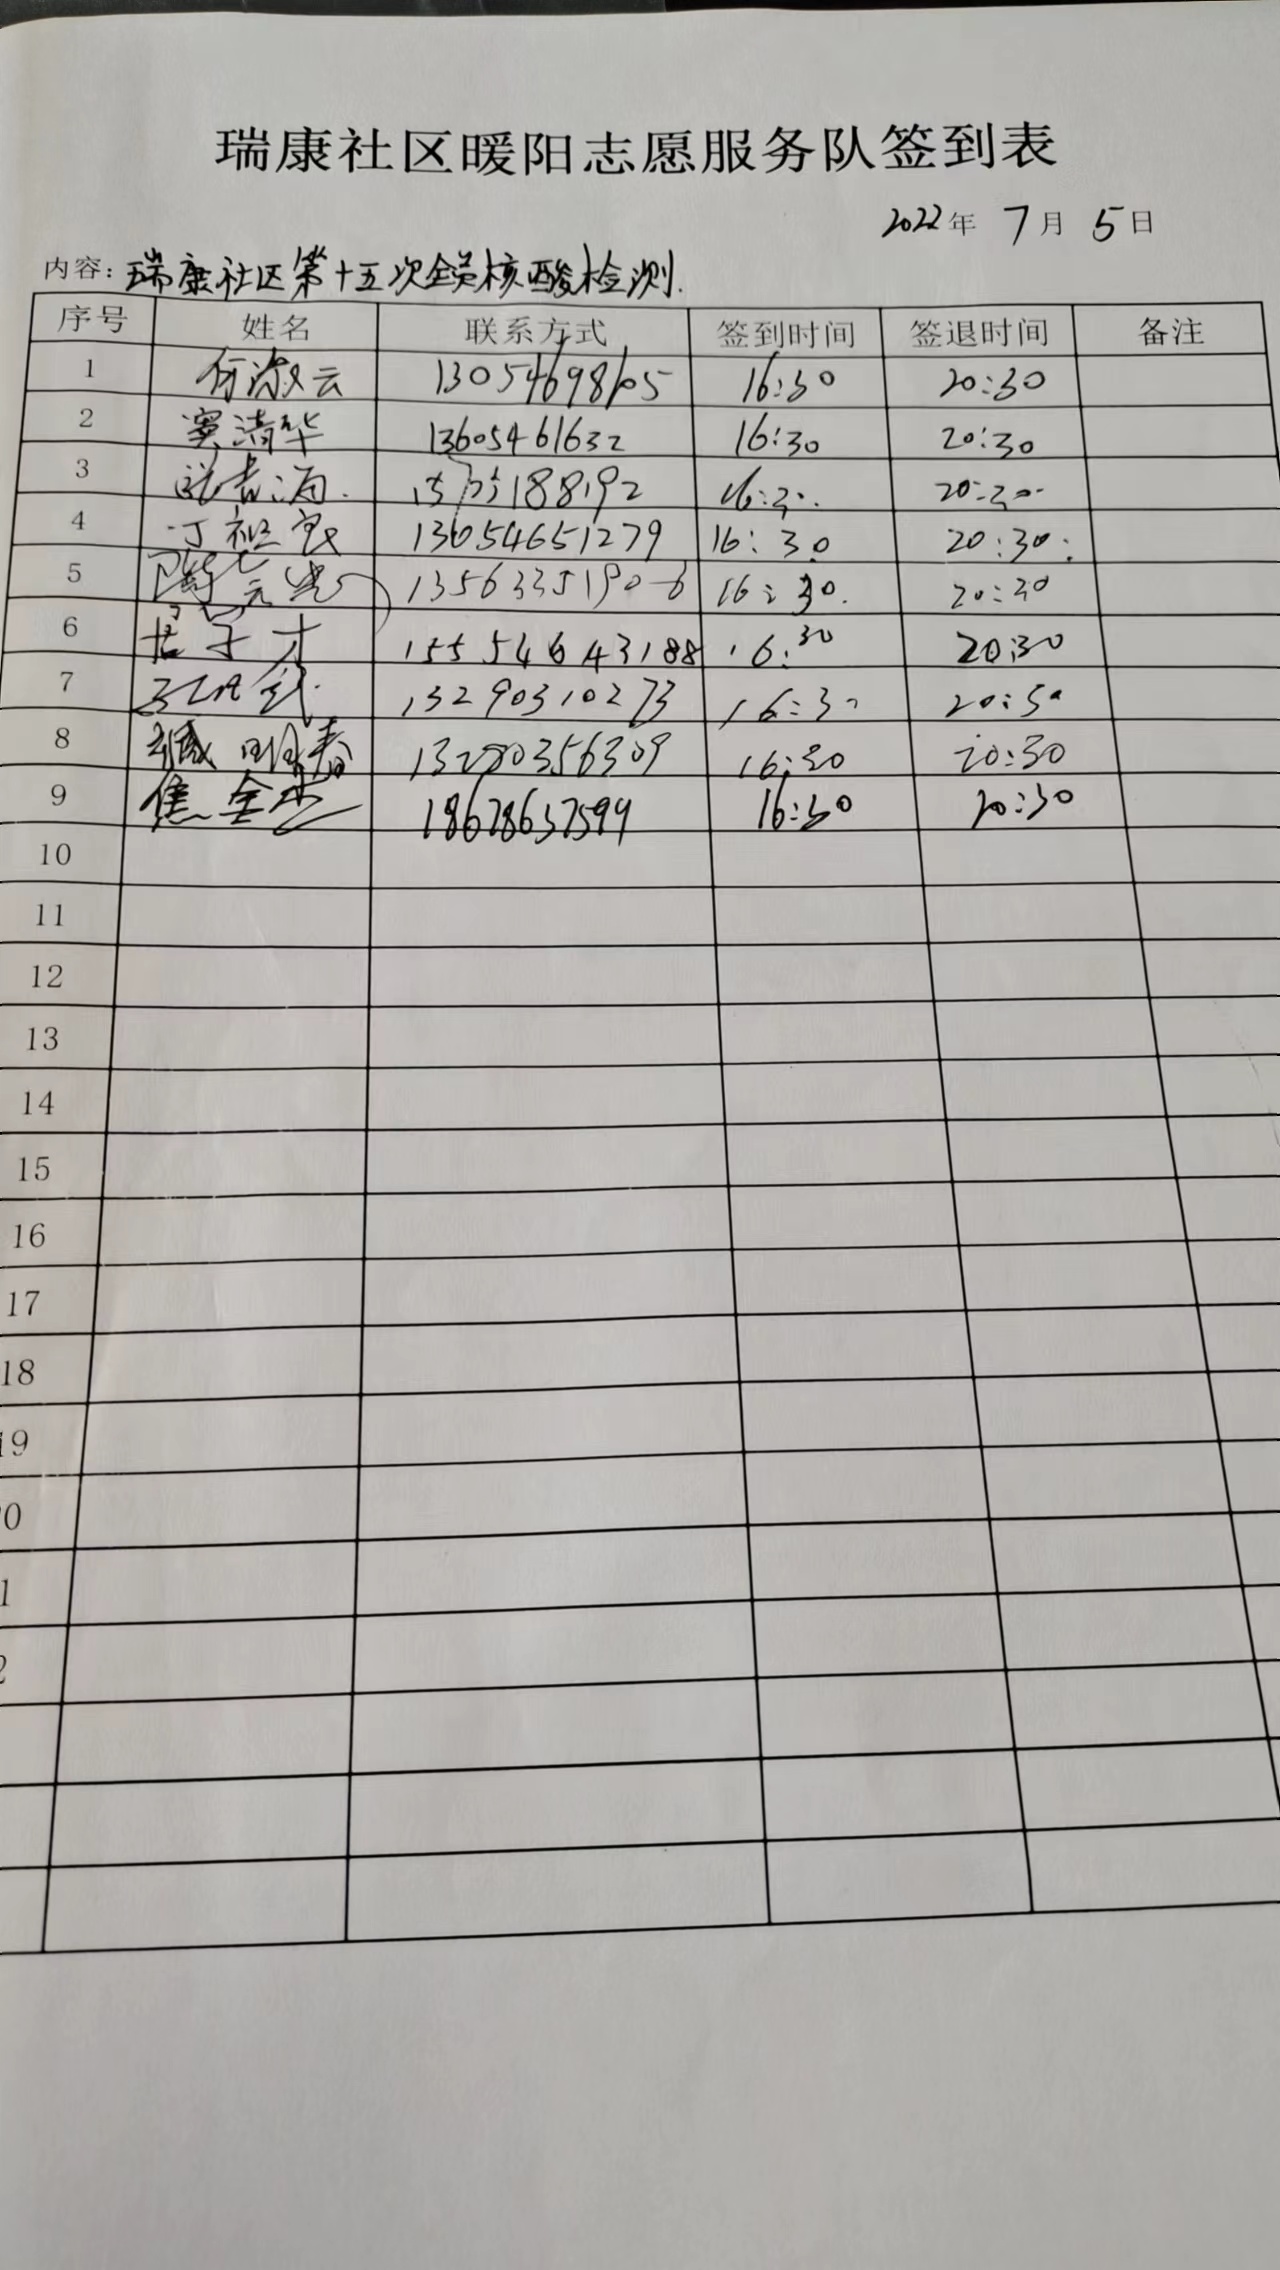 瑞康社区暖阳志愿服务队签到表
2022年 7月 5日
内容：瑞康社区第十五次全员核酸检测.
序号 姓名 联系方式 签到时间 签退时间 备注
1 淑云 13054698105 16:30 20:30
2 窦清华 13605461632 16:30 20:30
3 188192
4 丁祖良 13054651279 16:30 20:30
5 元 13563351906 16:30 20:30
6 子才 15554643188 16:30 20:30
7 13290310273 16:30
8 臧明春 13280356309 16:30 20:30
9 焦金 18678637599 16:30 20:30
10
11
12
13
14
15
16
17
18
19
0
1
2